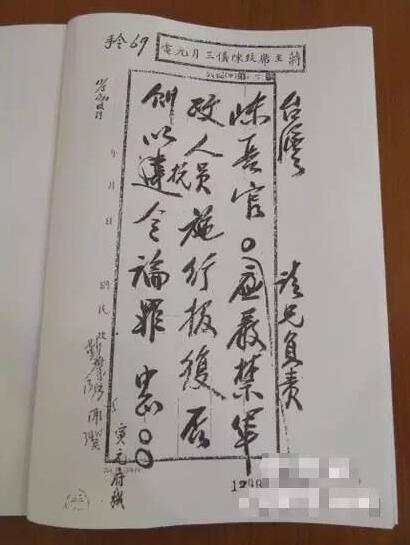 手令69
蔣主席致陳儀三月元電
台灣 請兄負責
陳長官。應嚴禁軍
政人員施行報復否
則以違抗令論罪 中正
寅元府機
年 月 日 時